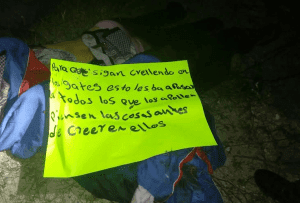 Para que sigan crellendo en
los gates esto les ba a Pasar
a todos los que los apollen
Piensen las cosas antes
de creer en ellos